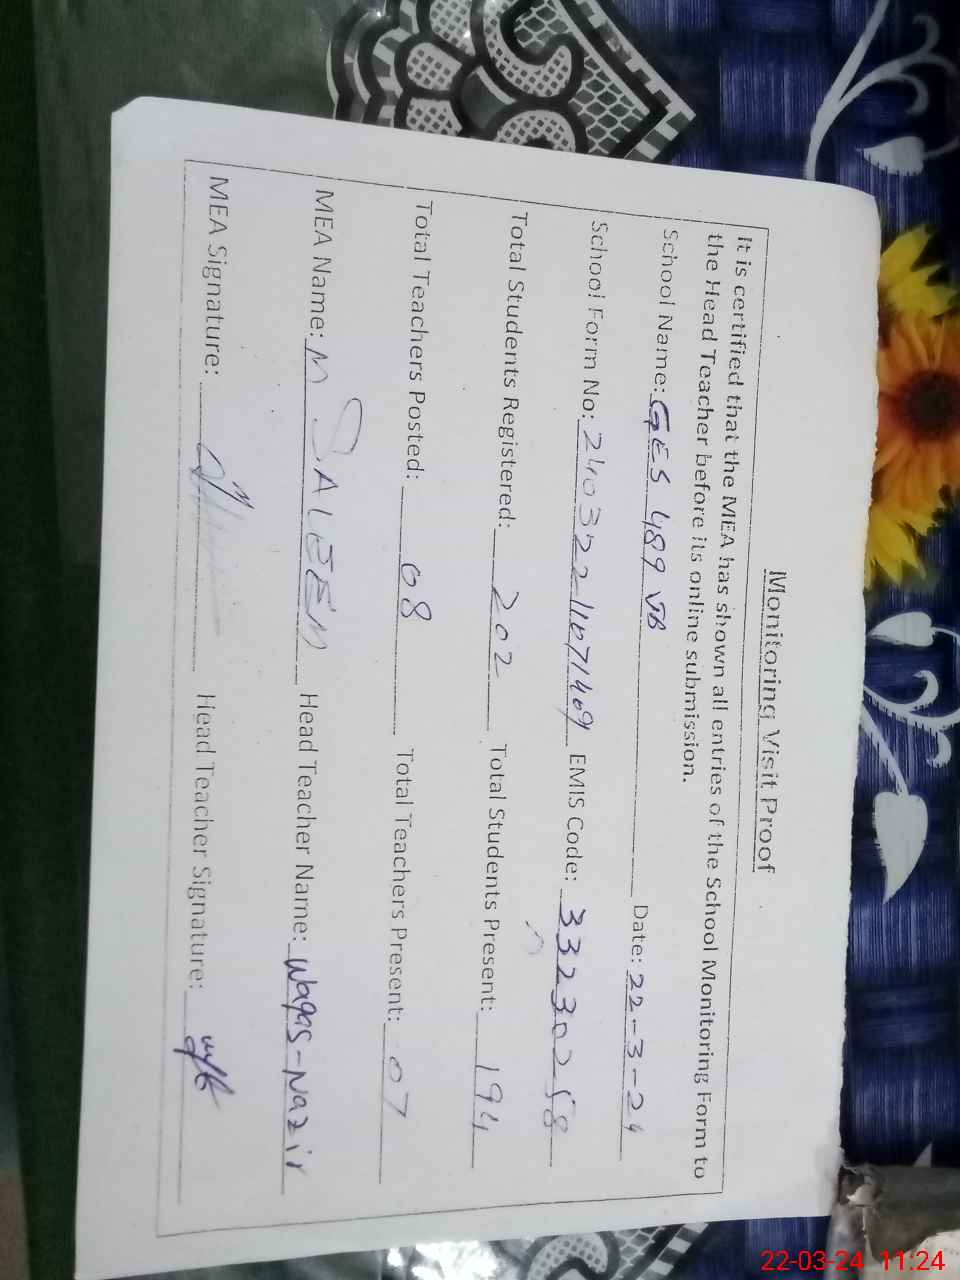 Monitoring Visit Proof
It is certified that the MEA has shown all entries of the School Monitoring Form to
the Head Teacher before its online submission.
School Name: GES 489 JB Date: 22-3-24
School Form No: 24032211071409 EMIS Code: 33230258
Total Students Registered: 202 Total Students Present: 194
Total Teachers Posted: 08 Total Teachers Present: 07
MEA Name: M SALEEM Head Teacher Name: Waqas-Nazir
MEA Signature: Head Teacher Signature:
22-03-24 11:24